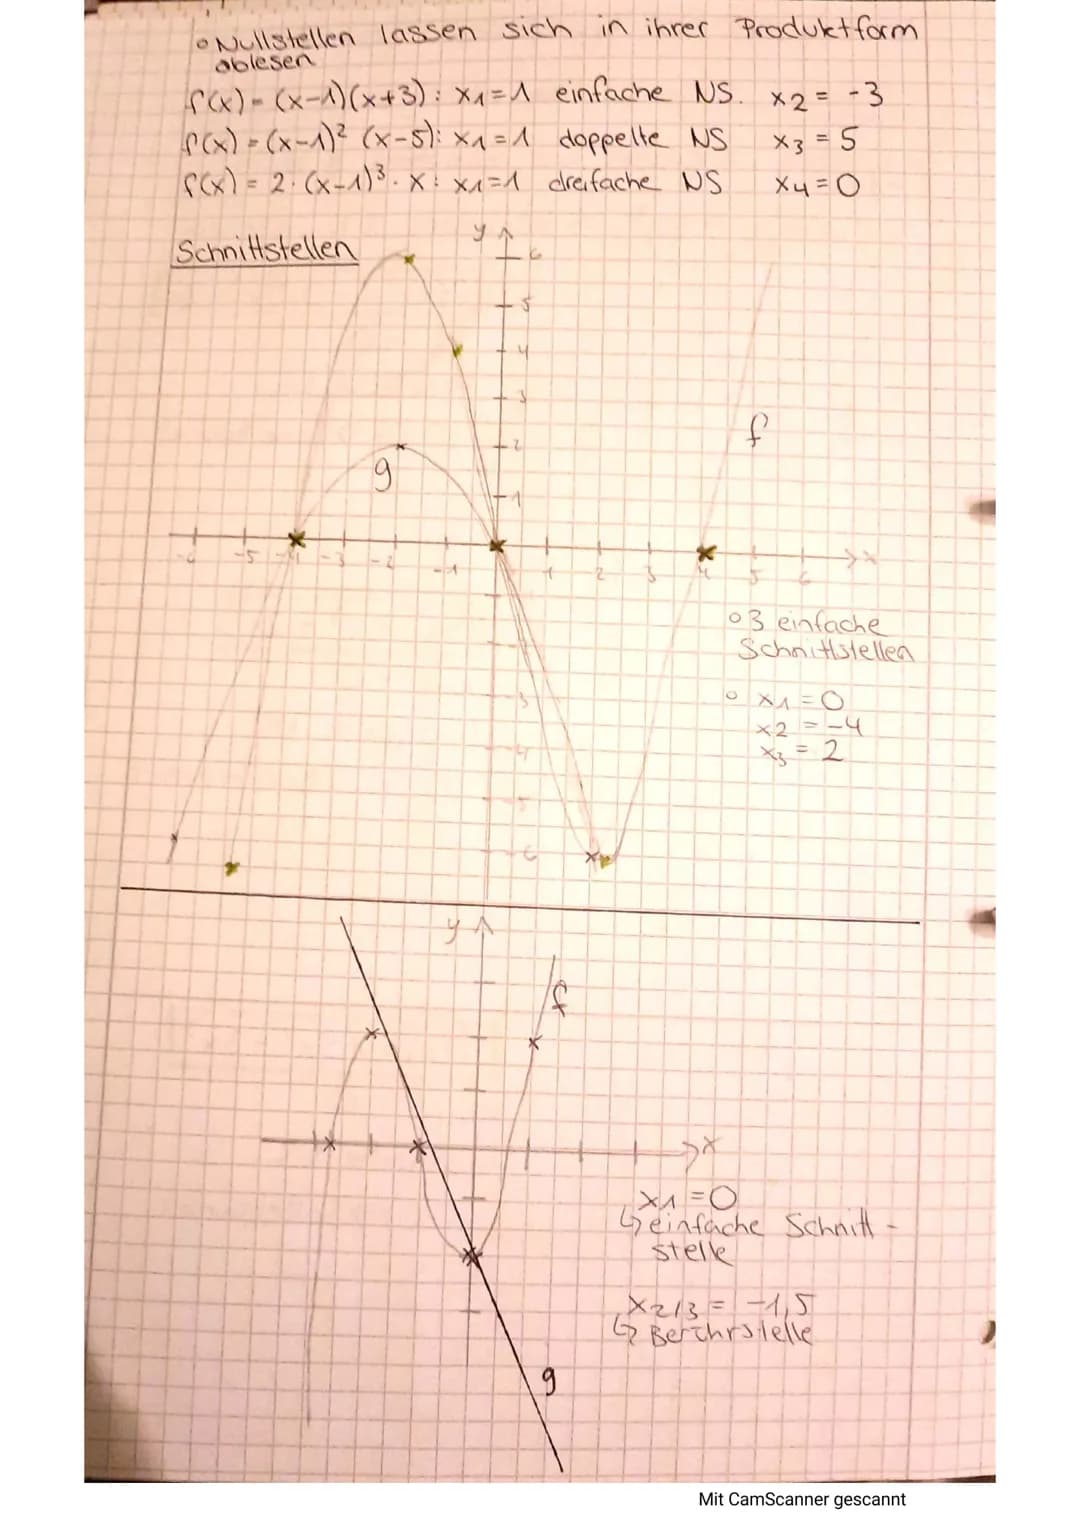 ° Nullstellen lassen sich in ihrer Produktform
ablesen
f(x) = (x-1)(x+3): x1=1 einfache NS. x2 = -3
f(x) = (x-1)² (x-5): x1=1 doppelte NS x3 = 5
f(x) = 2·(x-1)³·x: x1=1 dreifache NS x4=0
Schnittstellen
y
6
5
4
3
2
1
f
g
-6 -5 -4 -3 -2 -1 1 2 3 4 5 6 x
-3
-4
-5
-6
° 3 einfache
Schnittstellen
° x1=0
x2 = -4
x3 = 2
y
f
x
x1=0
↳ einfache Schnitt-
stelle
x2/3 = -1,5
↳ Berührstelle
g
Mit CamScanner gescannt